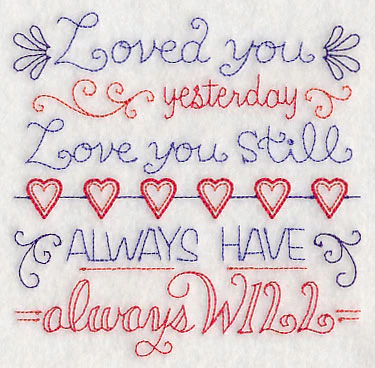 Loved you
yesterday
Love you Still
ALWAYS HAVE
always WILL